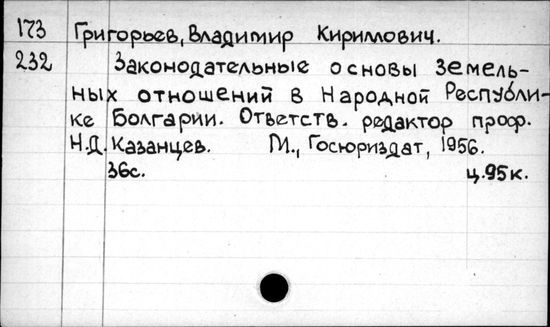 173 Григорьев, Владимир Кириллович.
232 Законодательные основы земель-
ных отношений в Народной Республи-
ке Болгарии. Ответств. редактор проф.
Н.Д. Казанцев. М., Госюриздат, 1956.
36с. ц.95к.